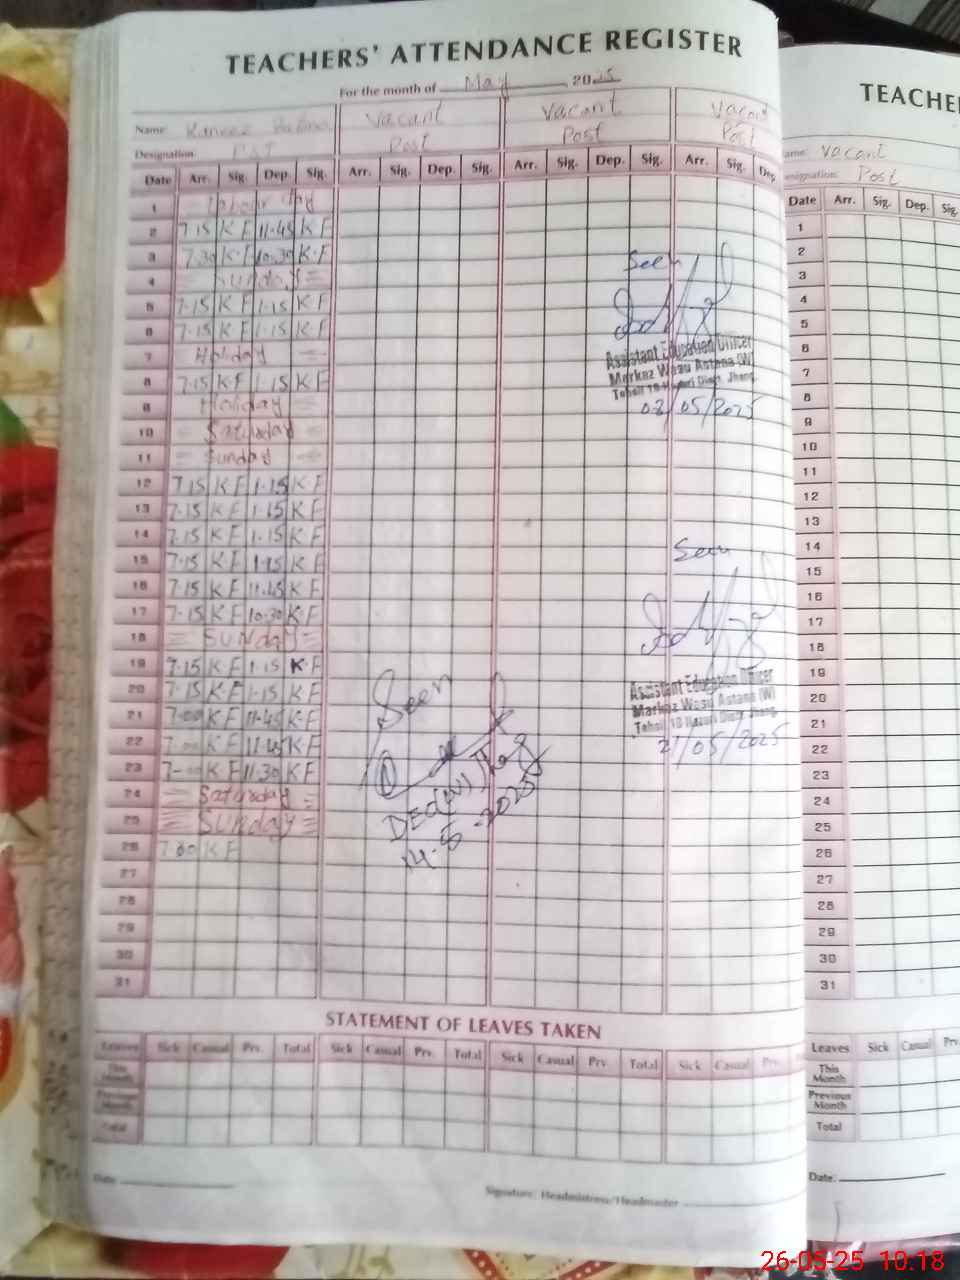 TEACHERS' ATTENDANCE REGISTER
For the month of May, 2025
Name: Kaneez Fatima Vacant Vacant Vacant
Designation: PST Post Post Post
Date Arr. Sig. Dep. Sig. Arr. Sig. Dep. Sig. Arr. Sig. Dep. Sig. Arr. Sig. Dep.
1 Labour day
2 7.15 K F 11.45 K F
3 7.30 K F 10.30 K.F
4 Sunday
5 7.15 K F 1.15 K F
6 7.15 K F 1.15 K F
7 Holiday
8 7.15 K F 1.15 K F
9 Holiday
10 Saturday
11 Sunday
12 7.15 K F 1.15 K F
13 7.15 K F 1.15 K F
14 7.15 K F 1.15 K F
15 7.15 K F 1.15 K F
16 7.15 K F 11.45 K F
17 7.15 K F 10.30 K.F
18 Sunday
19 7.15 K F 1.15 K.F
20 7.15 K.F 1.15 K F
21 7-00 K F 11-45 K.F
22 7-00 K F 11-45 K F
23 7-00 K.F 11.30 K F
24 Saturday
25 Sunday
26 7.00 K F
27
28
29
30
31
Seen
Assistant Education Officer
Markaz Wasu Astana (W)
Tehsil 18-Hazari Distt. Jhang.
08/05/2025
Seen
Assistant Education Officer
Markaz Wasu Astana (W)
Tehsil 18 Hazari Distt. Jhang.
21/05/2025
Seen
Jhang
14-5-2025
STATEMENT OF LEAVES TAKEN
Leaves Sick Casual Prv. Total Sick Casual Prv. Total Sick Casual Prv. Total Sick Casual
This Month
Previous Month
Total
Date
Signature: Headmistress/Headmaster
TEACHE
Name: Vacant
Designation: Post
Date Arr. Sig. Dep. Sig.
1
2
3
4
5
6
7
8
9
10
11
12
13
14
15
16
17
18
19
20
21
22
23
24
25
26
27
28
29
30
31
Leaves Sick Casual Prv
This Month
Previous Month
Total
Date:
26-05-25 10.18